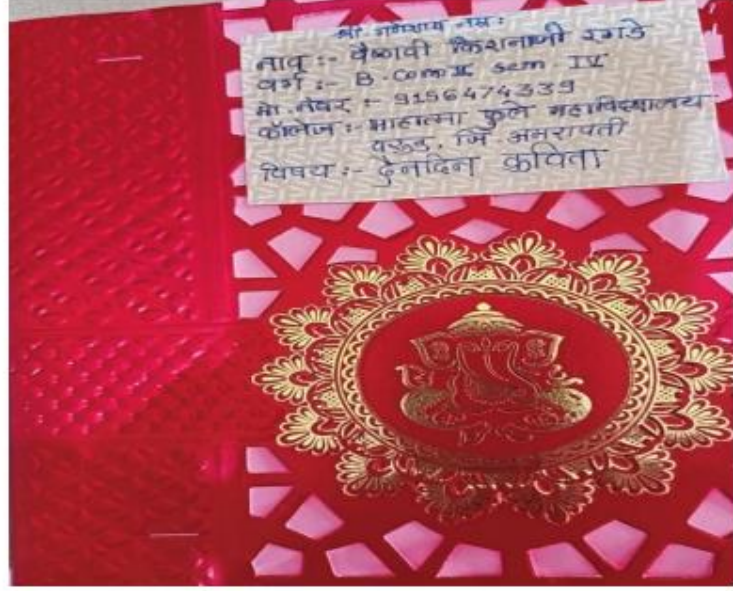 श्री गणेशाय नमः
नाव :- वैष्णवी किसनाजी रगडे
वर्ग :- B.com II sem. IV
मो. नंबर :- 9156474339
कॉलेज :- माहात्मा फुले महाविद्यालय
वरुड, जि अमरावती
विषय :- दैनंदिन कविता